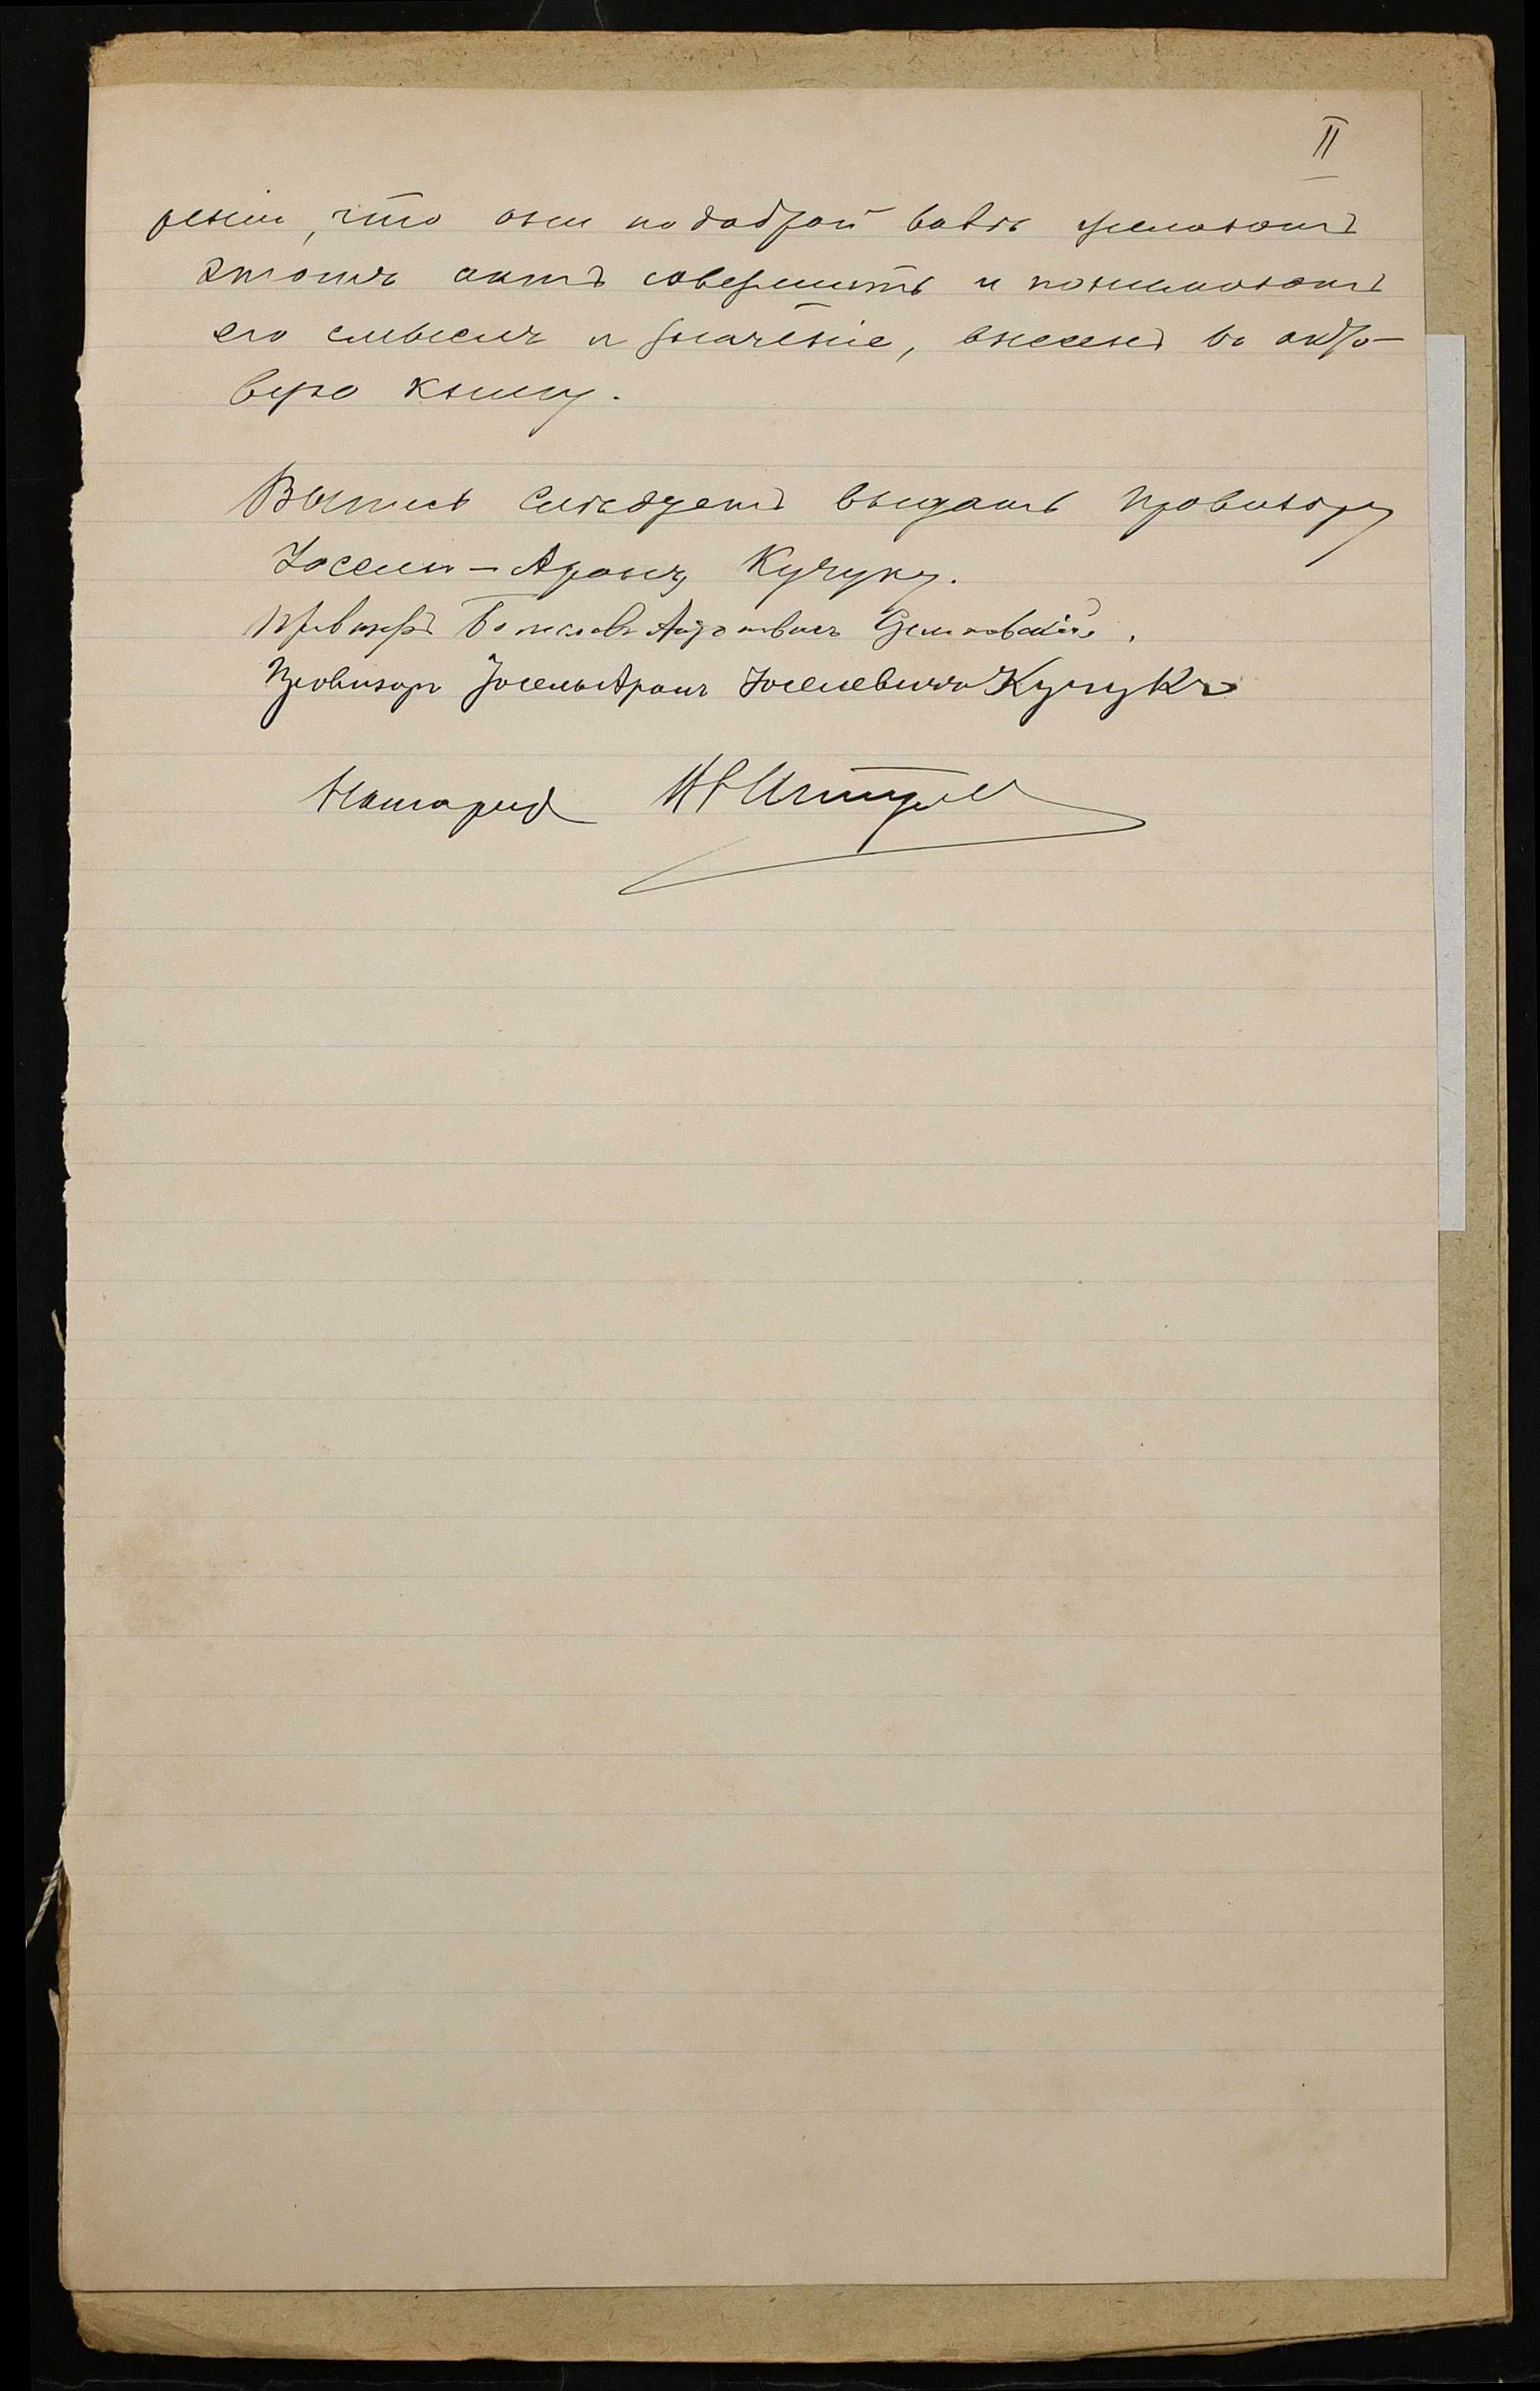 II
реніи, что они по доброй волѣ желаютъ
этотъ актъ совершить и понимаютъ
его смыслъ и значеніе, внесенъ въ акто-
вую книгу.
Выпись слѣдуетъ выдать провизору
Іоселю-Арону Кучуку.
Провизоръ Болеславъ Антоновичъ
Провизоръ Іосель Аронъ Іоселевичъ Кучукъ
Нотаріусъ